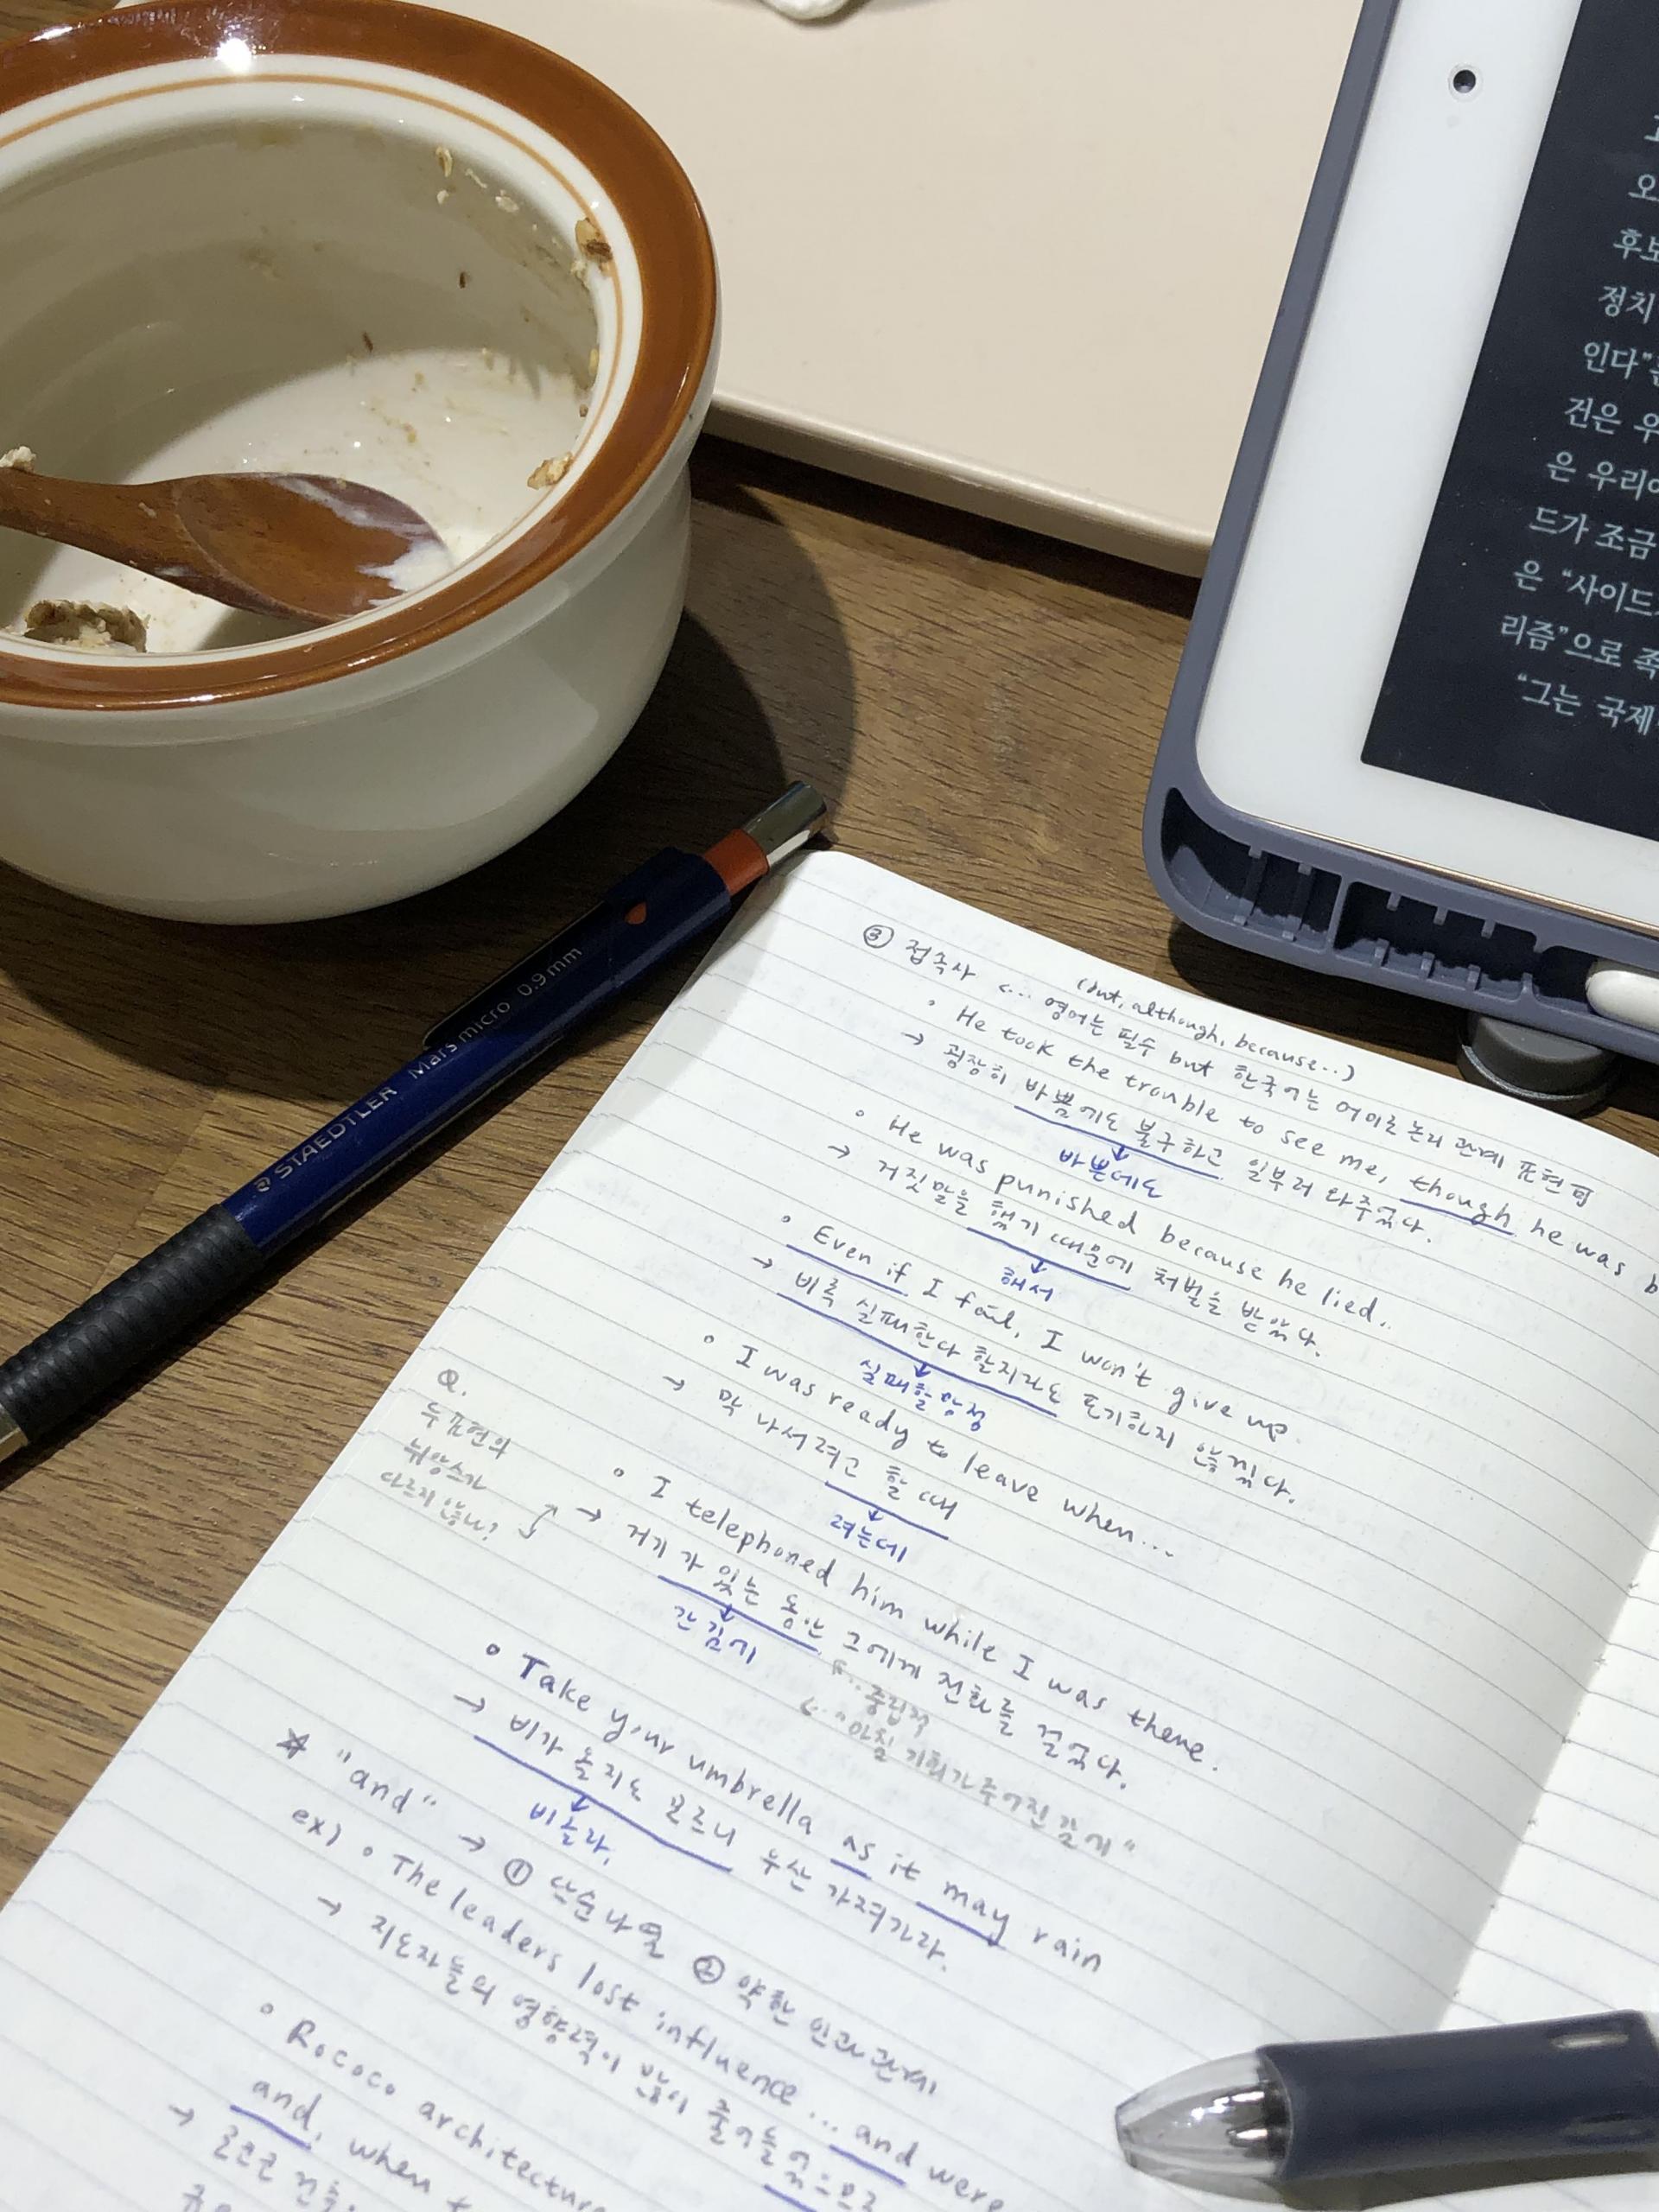 오
후보
정치
인다"는
건은 우
은 우리
드가 조금
은 "사이드
리즘"으로 족
"그는 국제
STAEDTLER Mars micro 0.9mm
③ 접속사 (but, although, because...)
<... 영어는 필수 but 한국어는 어미로 논리 관계 표현함
• He took the trouble to see me, though he was b
→ 굉장히 바쁨에도 불구하고 일부러 와주었다.
↓
바쁜데도
• He was punished because he lied.
→ 거짓말을 했기 때문에 처벌을 받았다.
↓
해서
• Even if I fail, I won't give up.
→ 비록 실패한다 할지라도 포기하지 않겠다.
↓
실패할망정
• I was ready to leave when...
→ 막 나서려고 할 때
↓
려는데
• I telephoned him while I was there.
→ 거기 가 있는 동안 그에게 전화를 걸었다.
↓
간 김에
Q.
두 표현의
뉘앙스가
다르지 않나?
<... 중립적
<... "마침 기회가 주어진 김에"
• Take your umbrella as it may rain
→ 비가 올지도 모르니 우산 가져가라.
↓
비올라.
☆ "and" → ① 단순나열 ② 약한 인과관계
ex) • The leaders lost influence ... and were
→ 지도자들의 영향력이 많이 줄어들었으므로
• Rococo architecture
and, when
→ 로코코 건축